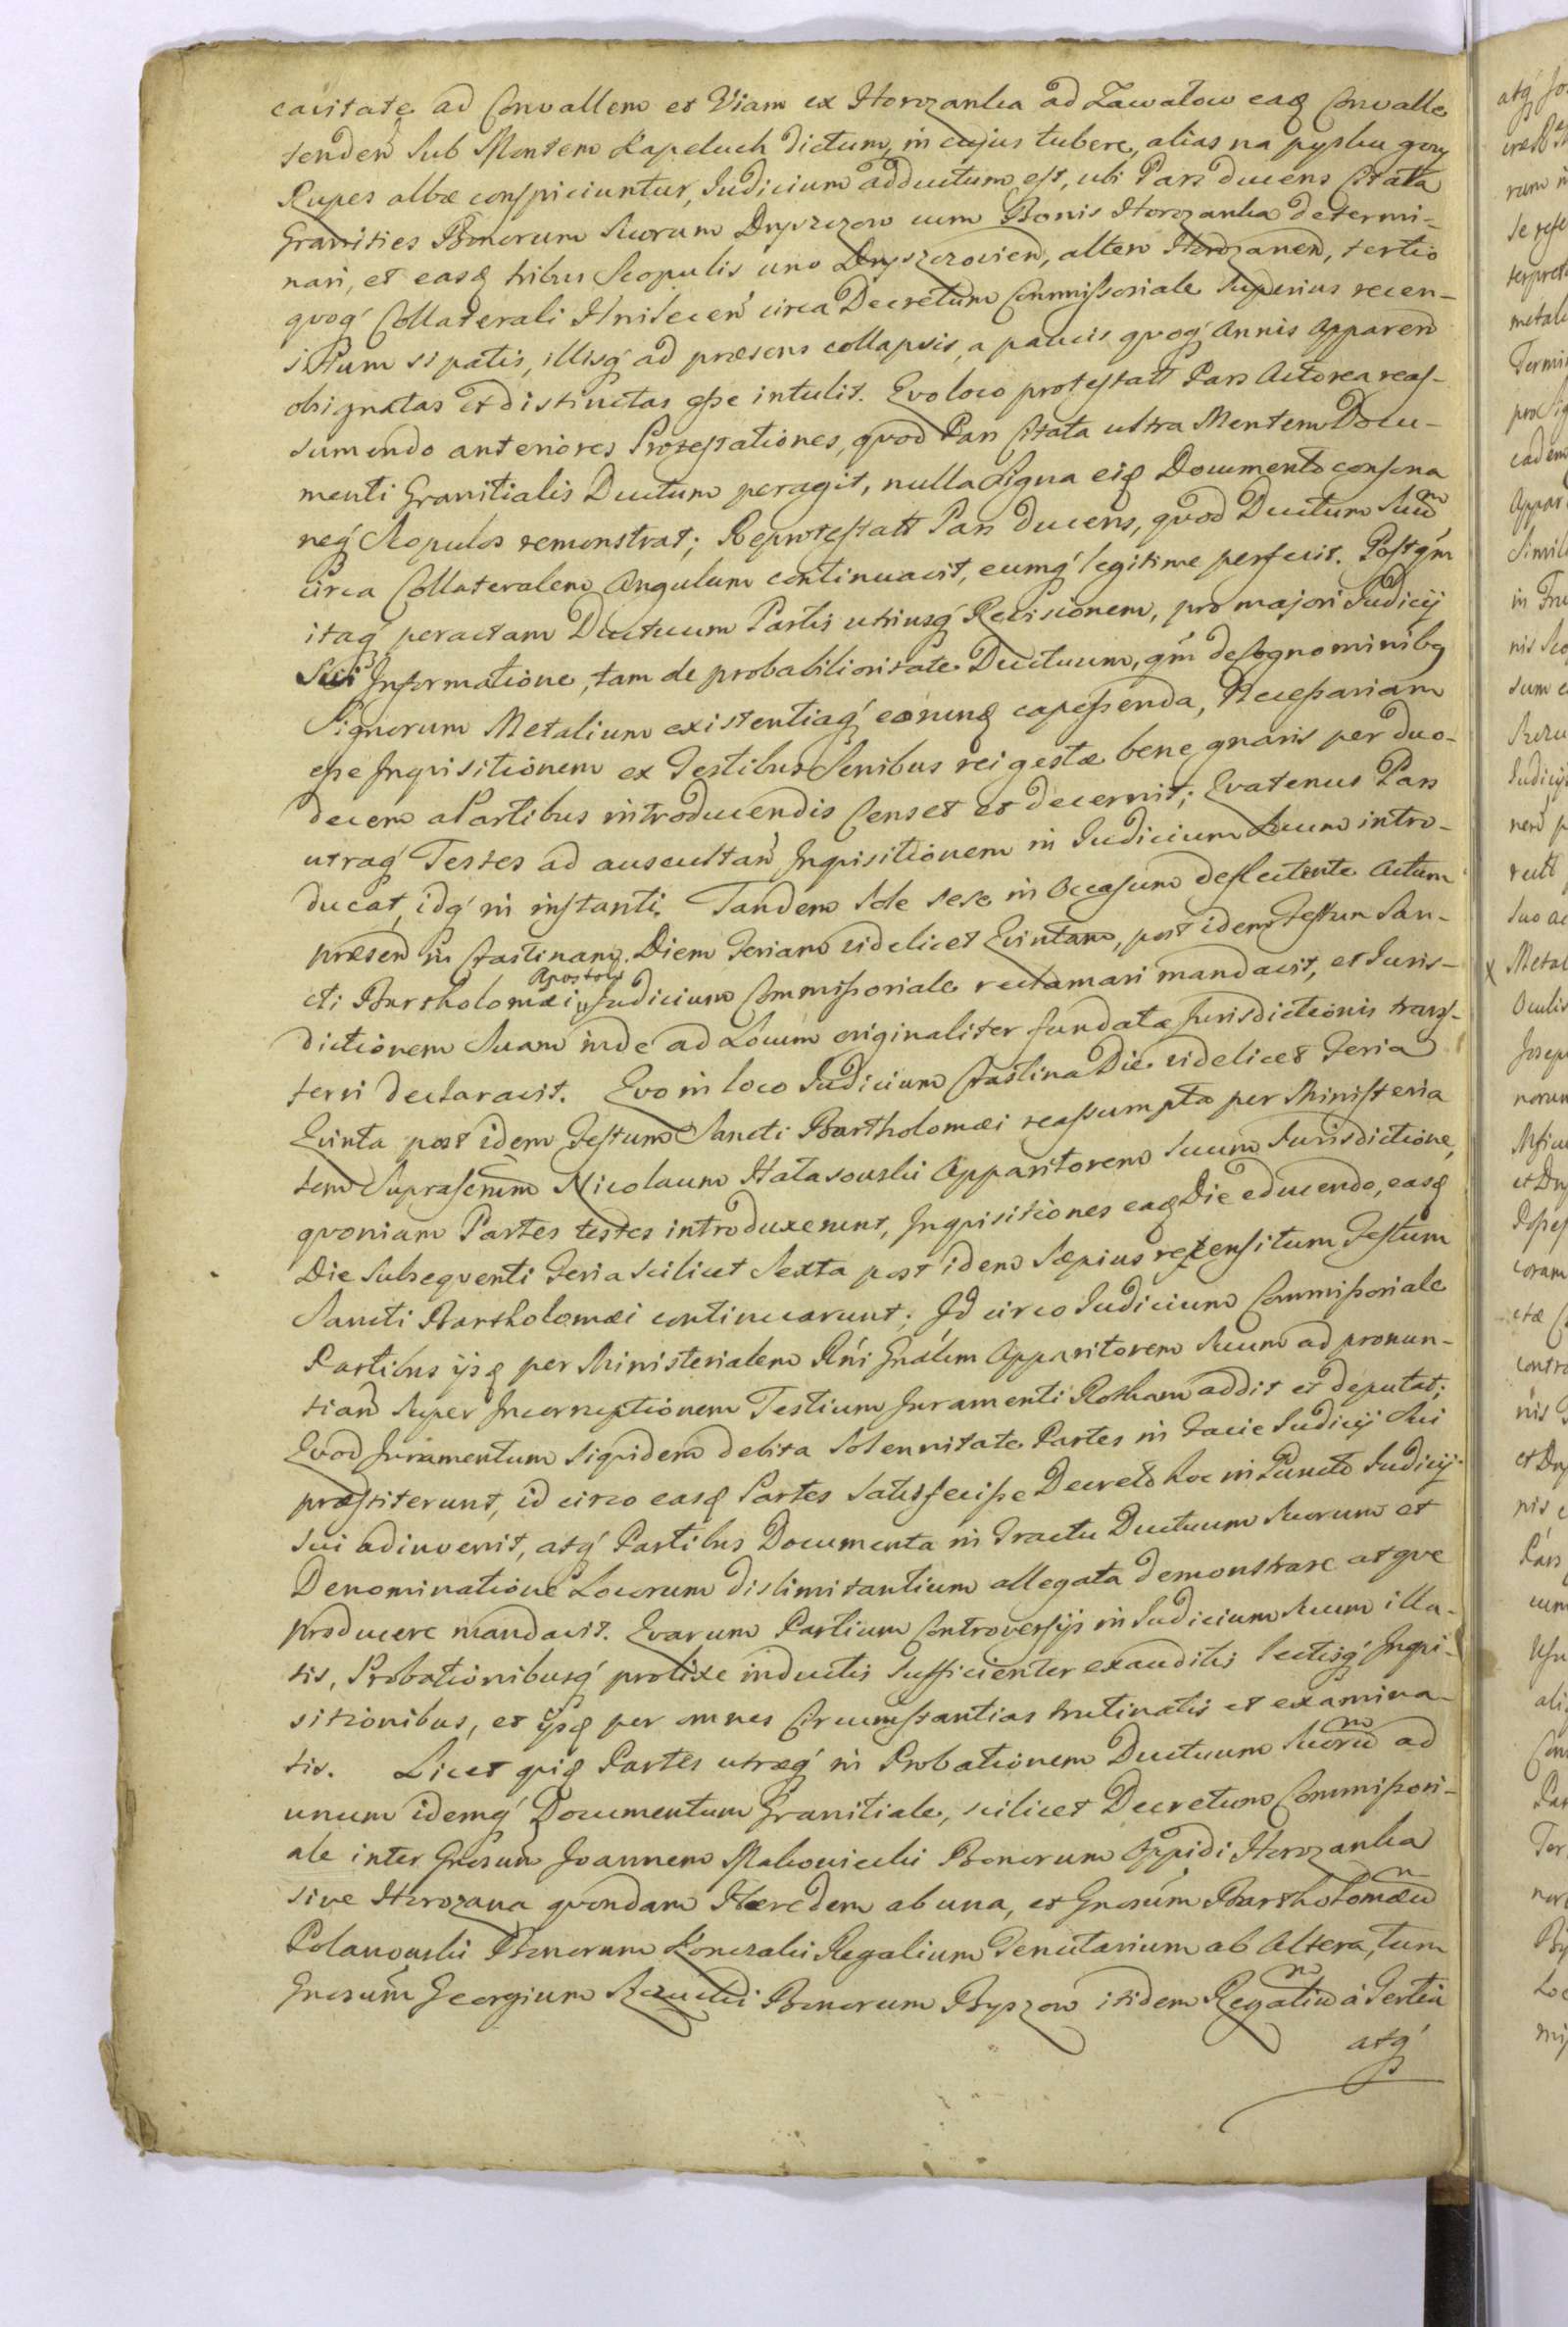 cavitate ad Convallem et Viam ex Horozanka ad Zawalow eaq Convalle
tenden̄ sub Montem Kapeluch dictum, in cujus tubere, alias na pysku gory
Rupes albæ conspiciuntur, Judicium adductum est, ubi Pars ducens Citata
Granities Bonorum Suorum Dryszczow cum Bonis Horozanka determi-
nari, et easq tribus Scopulis uno Dryszczovien̄, altero Horozanen̄, tertio
quoq́ Collaterali Hnilecen̄ circa Decretum Commissoriale Superius recen-
situm sipatis, illisq́ ad præsens collapsis, a paucis quoq́ Annis Apparen̄
obsignatas et distinctas esse intulit. Quo loco protestatt Pars Actorea reas-
sumendo anteriores Protestationes, quod Pars Citata ultra Mentem Docu-
menti Granitialis Ductum peragit, nulla Signa eiq Documento consona
neq́ Scopulos remonstrat; Reprotestatt Pars ducens, quod Ductum Suum
circa Collateralem Angulum continuavit, eumq́ legitime perfecit. Postq́m
itaq́ peractam Ductuum Partis utriusq́ Revisionem, pro majori Judicij
Sui Informatione, tam de probabilioritate Ductuum, q́m de cognominibq
Signorum Metalium existentiaq́ eorumq capessenda, Necessariam
esse Inquisitionem ex Testibus Senibus rei gestæ bene gnaris per duo-
decem a Partibus introducendis Censet et decernit; Quatenus Pars
utraq́ Testes ad auscultan̄ Inquisitionem in Judicium Suum intro-
ducat, idq́ in instanti. Tandem Sole sese in Occasum deflectente Actum
præsen̄ in Crastinam Diem Feriam videlicet Quintam, post idem Festum San-
cti Bartholomæi Apostoli Judicium Commissoriale reclamari mandavit, et Juris-
dictionem Suam inde ad Locum originaliter fundatæ Jurisdictionis trans-
ferri declaravit. Quo in loco Judicium Crastina Die videlicet Feria
Quinta post idem Festum Sancti Bartholomæi reassumpta per Ministeria
lem Suprascrium Nicolaum Hatasouski Apparitorem Suum Jurisdictione,
quoniam Partes testes introduxerunt, Inquisitiones eaq Die educendo, easq
Die subsequenti Feria scilicet Sexta post idem Sæpius recensitum Festum
Sancti Bartholomæi continuarunt; Id circo Judicium Commissoriale
Partibus ijsq per Ministerialem Rńi Gnálem Apparitorem Suum ad pronun-
tian̄ super Incorruptionem Testium Juramenti Rotham addit et deputat;
Quod Juramentum siquidem debita Solennitate Partes in Facie Judicij Sui
præstiterunt, id circo easq Partes satisfecisse Decreto hoc in Puncto Judicij
Sui adinvenit, atq́ Partibus Documenta in Tractu Ductuum Suorum et
Denominatione Locorum dislimitantium allegata demonstrare atque
producere mandavit. Quarum Partium Controversijs in Judicium Suum illa-
tis, Probationibusq́ prolixe inductis sufficienter exauditis lectisq́ Inqui-
sitionibus, et ijsq per omnes Circumstantias trutinatis et examina-
tis. Licet quiq Partes utræq́ in Probationem Ductuum Suorum ad
unum idemq́ Documentum Granitiale, scilicet Decretum Commissori-
ale inter Gnosum Joannem Makowiecki Bonorum Oppidi Horozanka
sive Horozana quondam Hæredem ab una, et Gnosúm Bartholomæum
Polanouski Bonorum Konczaki Regalium Tenutarium ab Altera, tum
Gnosúm Georgium Bonorum Byszow itidem Regalium á Tertia
atq́